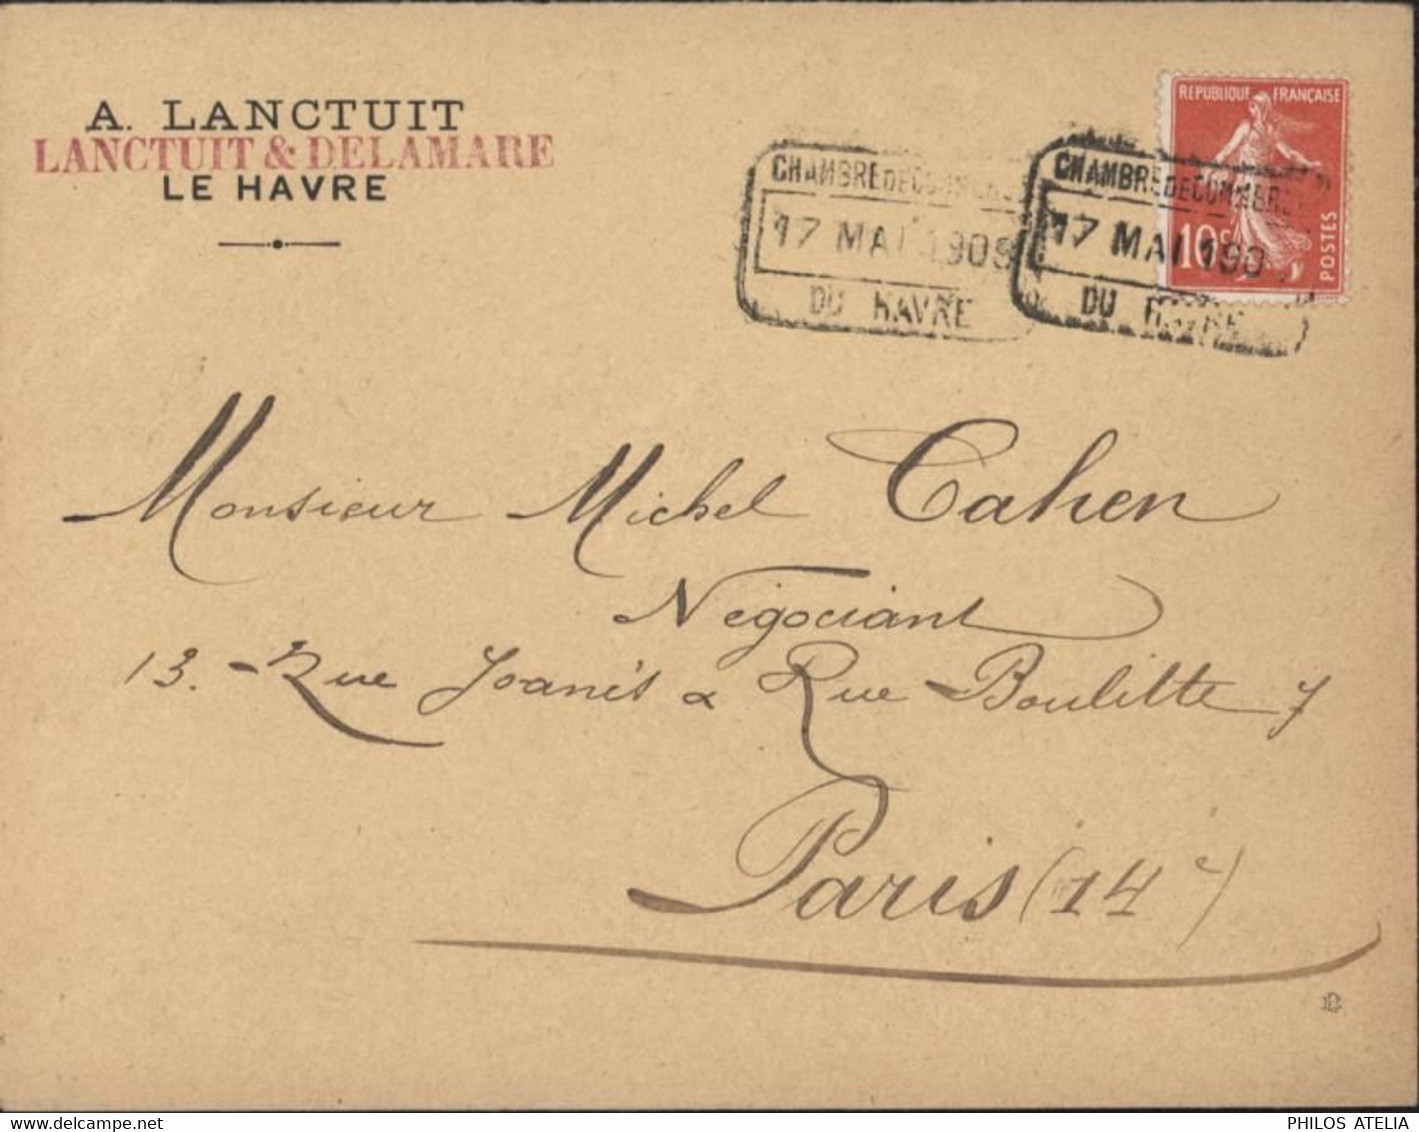 A. LANCTUIT
LANCTUIT & DELAMARE
LE HAVRE
REPUBLIQUE FRANÇAISE
10 c
POSTES
CHAMBRE DE COMMERCE
17 MAI 1909
DU HAVRE
CHAMBRE DE COMMERCE
17 MAI 190
DU HAVRE
Monsieur Michel Cahen
Négociant
13. Rue Joanès & Rue Boulitte 7
Paris (14e)
PHILOS ATELIA